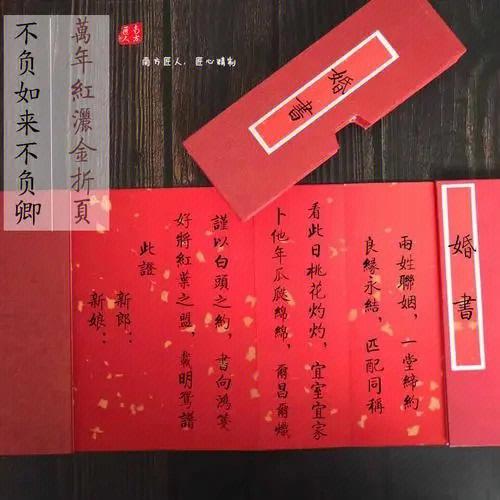 南方匠人
南方匠人，匠心精制
萬年紅灑金折頁
不负如来不负卿
婚書
婚書
兩姓聯姻，一堂締約
良緣永結，匹配同稱
看此日桃花灼灼，宜室宜家
卜他年瓜瓞綿綿，爾昌爾熾
謹以白頭之約，書向鴻箋
好將紅葉之盟，載明鴛譜
此證
新郎：
新娘：